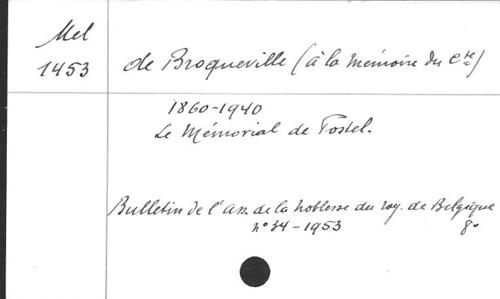 Mel
1453
de Broqueville (à la mémoire du Cte)
1860-1940
Le Mémorial de Postel.
Bulletin de l'Ass. de la Noblesse du roy. de Belgique
n° 34 - 1953 8°